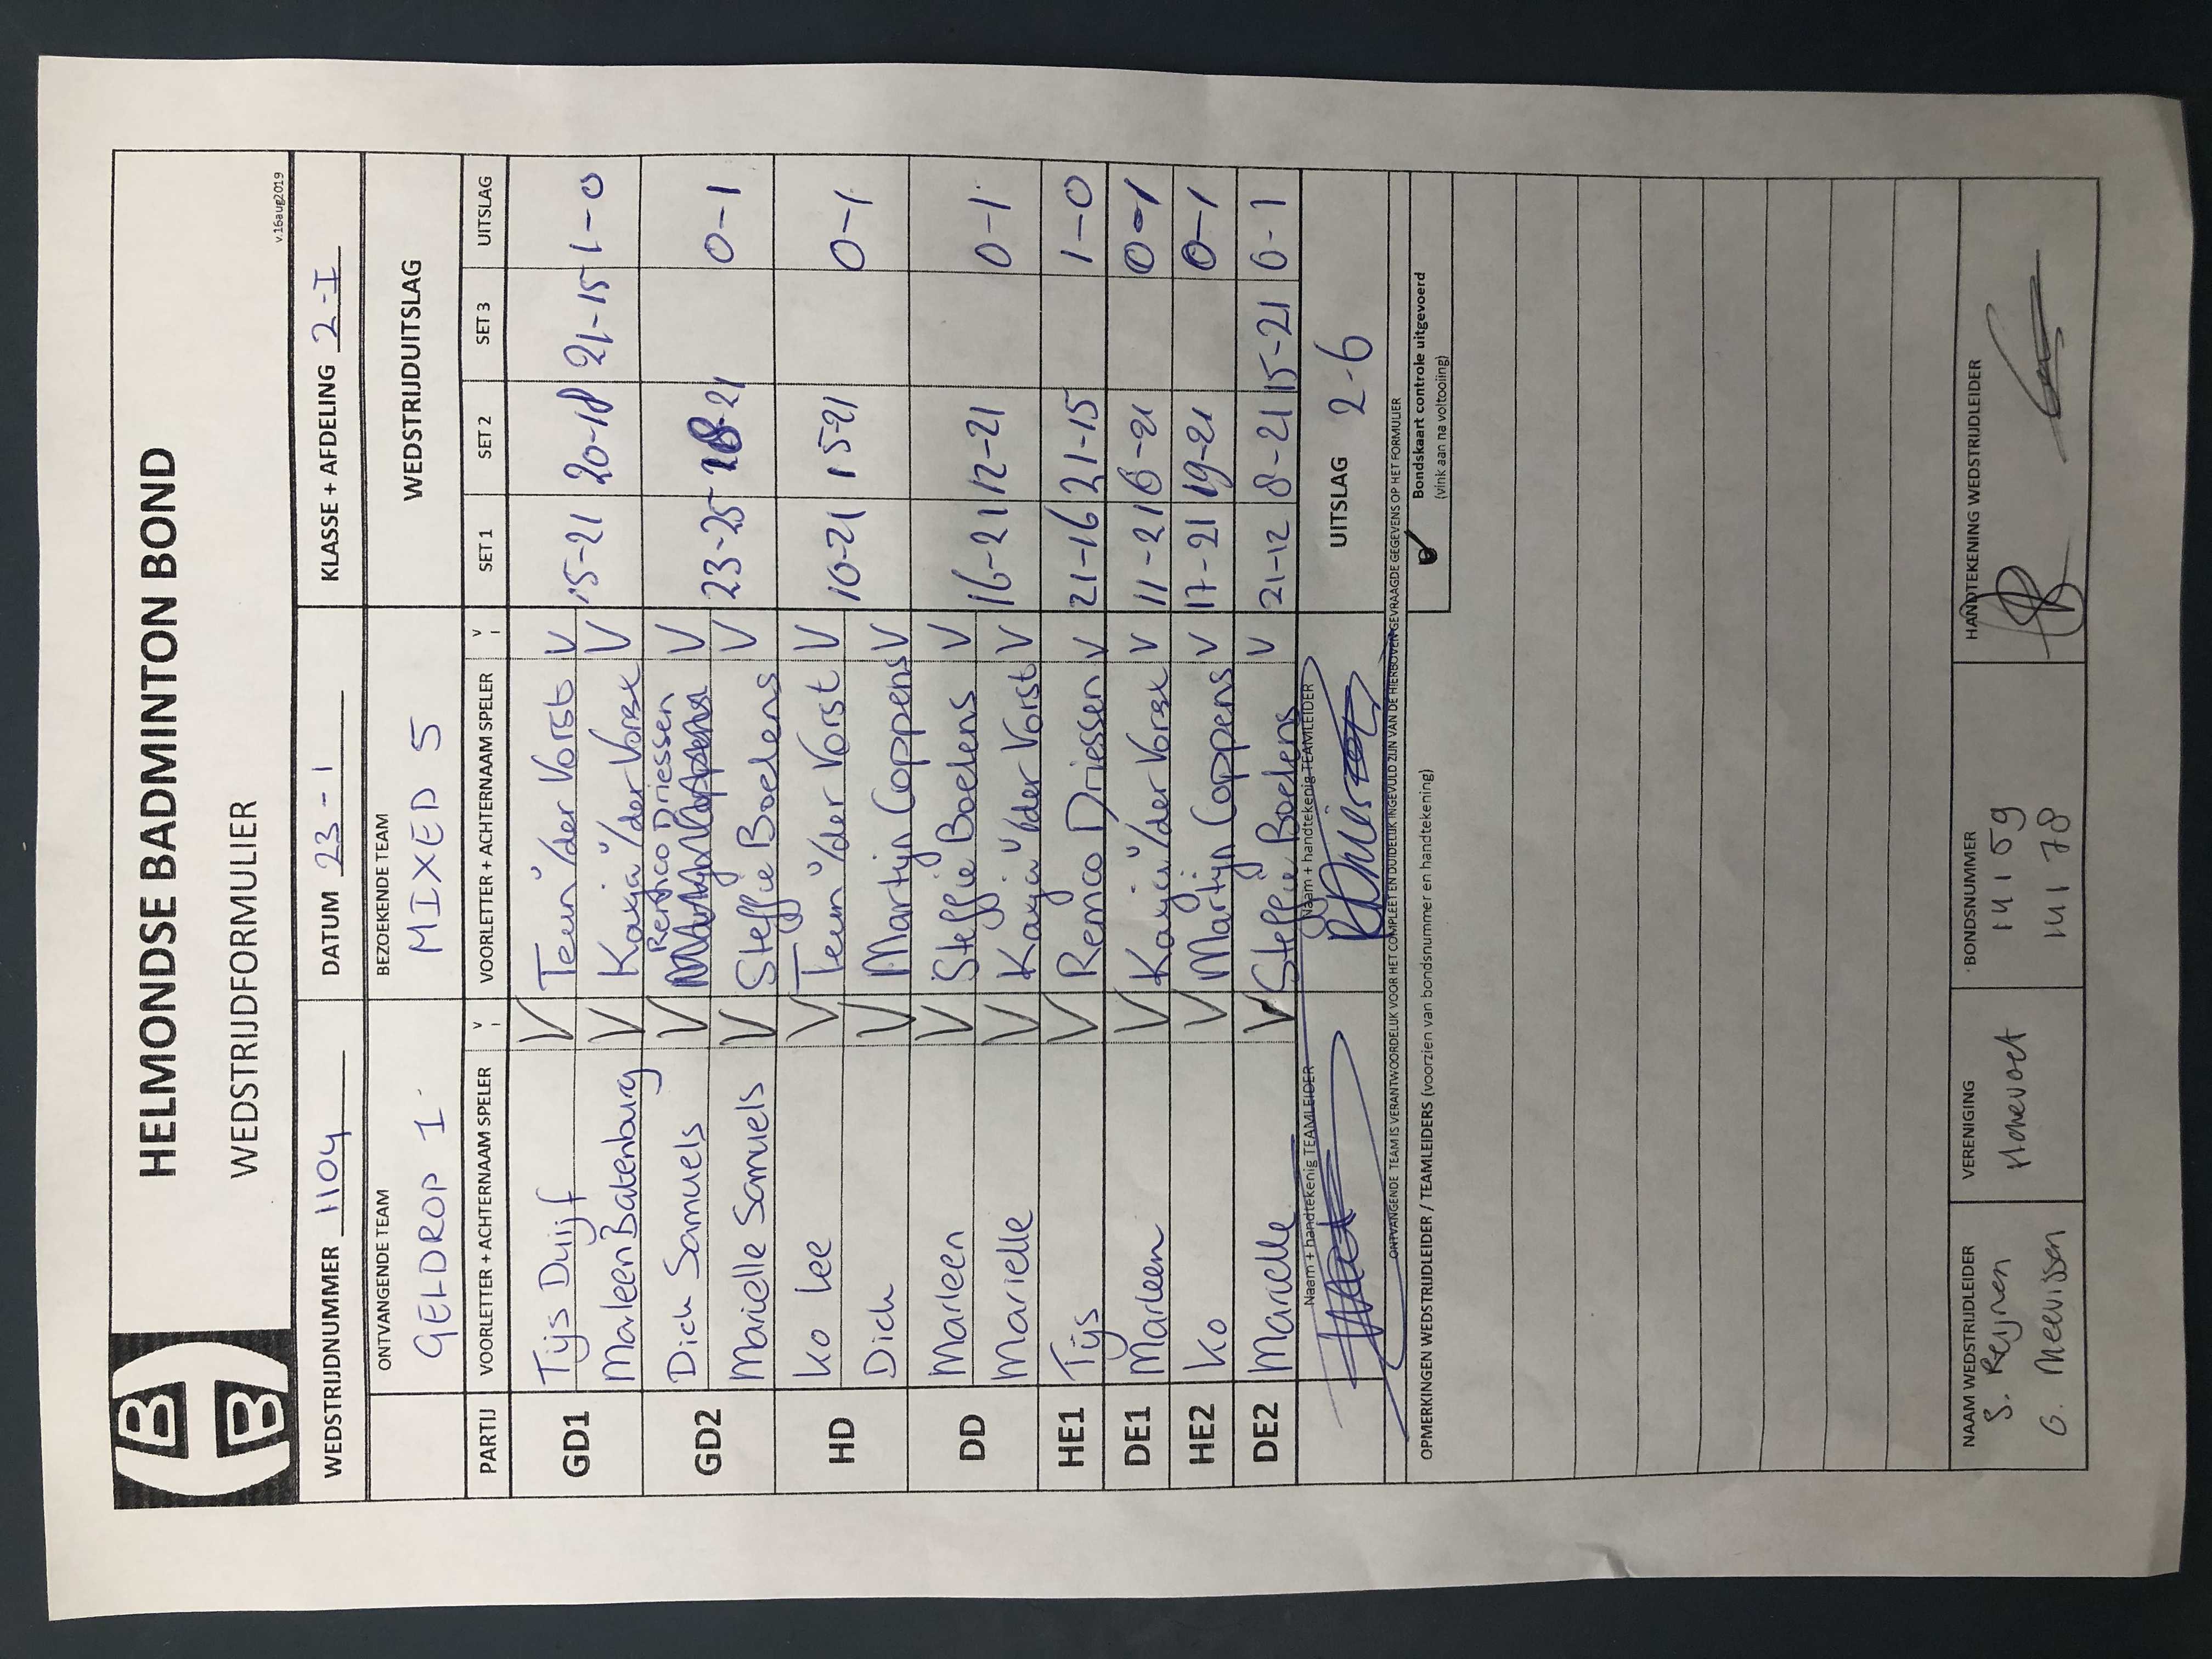 HB
HELMONDSE BADMINTON BOND
WEDSTRIJDFORMULIER
v.16aug2019
WEDSTRIJDNUMMER 1104 DATUM 23-1 KLASSE + AFDELING 2-I
ONTVANGENDE TEAM BEZOEKENDE TEAM WEDSTRIJDUITSLAG
GELDROP 1 MIXED 5
PARTIJ VOORLETTER + ACHTERNAAM SPELER V VOORLETTER + ACHTERNAAM SPELER V SET 1 SET 2 SET 3 UITSLAG
GD1 Tijs Duijf V Teun v/der Vorst V 15-21 20-18 21-15 1-0
Marleen Batenburg V Kayja v/der Vorst V
GD2 Dick Samuels V Remco Driessen V 23-25 18-21 0-1
Marielle Samuels V Steffie Boelens V
HD Ko Lee V Teun v/der Vorst V 10-21 15-21 0-1
Dick V Martijn Coppens V
DD Marleen V Steffie Boelens V 16-21 12-21 0-1
Marielle V Kayja v/der Vorst V
HE1 Tijs V Remco Driessen V 21-16 21-15 1-0
DE1 Marleen V Kayja v/der Vorst V 11-21 6-21 0-1
HE2 Ko V Martijn Coppens V 17-21 19-21 0-1
DE2 Marielle V Steffie Boelens V 21-12 8-21 15-21 0-1
Naam + handtekenig TEAMLEIDER Naam + handtekenig TEAMLEIDER UITSLAG 2-6
ONTVANGENDE TEAM IS VERANTWOORDELIJK VOOR HET COMPLEET EN DUIDELIJK INGEVULD ZIJN VAN DE HIERBOVEN GEVRAAGDE GEGEVENS OP HET FORMULIER
OPMERKINGEN WEDSTRIJDLEIDER / TEAMLEIDERS (voorzien van bondsnummer en handtekening)
Bondskaart controle uitgevoerd
(vink aan na voltooiing)
NAAM WEDSTRIJDLEIDER VERENIGING BONDSNUMMER HANDTEKENING WEDSTRIJDLEIDER
S. Reijnen 14159
G. Meevissen 14178